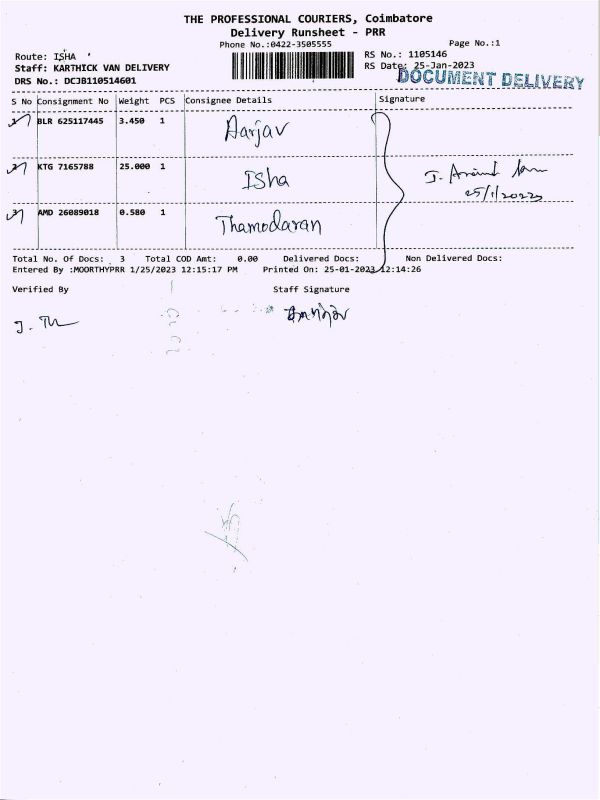 THE PROFESSIONAL COURIERS, Coimbatore
Delivery Runsheet - PRR
Phone No.:0422-3505555
Page No.:1
Route: ISHA
RS No.: 1105146
Staff: KARTHICK VAN DELIVERY
RS Date: 25-Jan-2023
DRS No.: DCJB110514601
DOCUMENT DELIVERY
S No Consignment No Weight PCS Consignee Details Signature
1 BLR 625117445 3.450 1 Aarjav
2 KTG 7165788 25.000 1 Isha
J. Anand
3 AMD 26089018 0.580 1 Thamodaran
Total No. Of Docs: 3 Total COD Amt: 0.00 Delivered Docs: Non Delivered Docs:
Entered By :MOORTHYPRR 1/25/2023 12:15:17 PM Printed On: 25-01-2023 12:14:26
Verified By Staff Signature